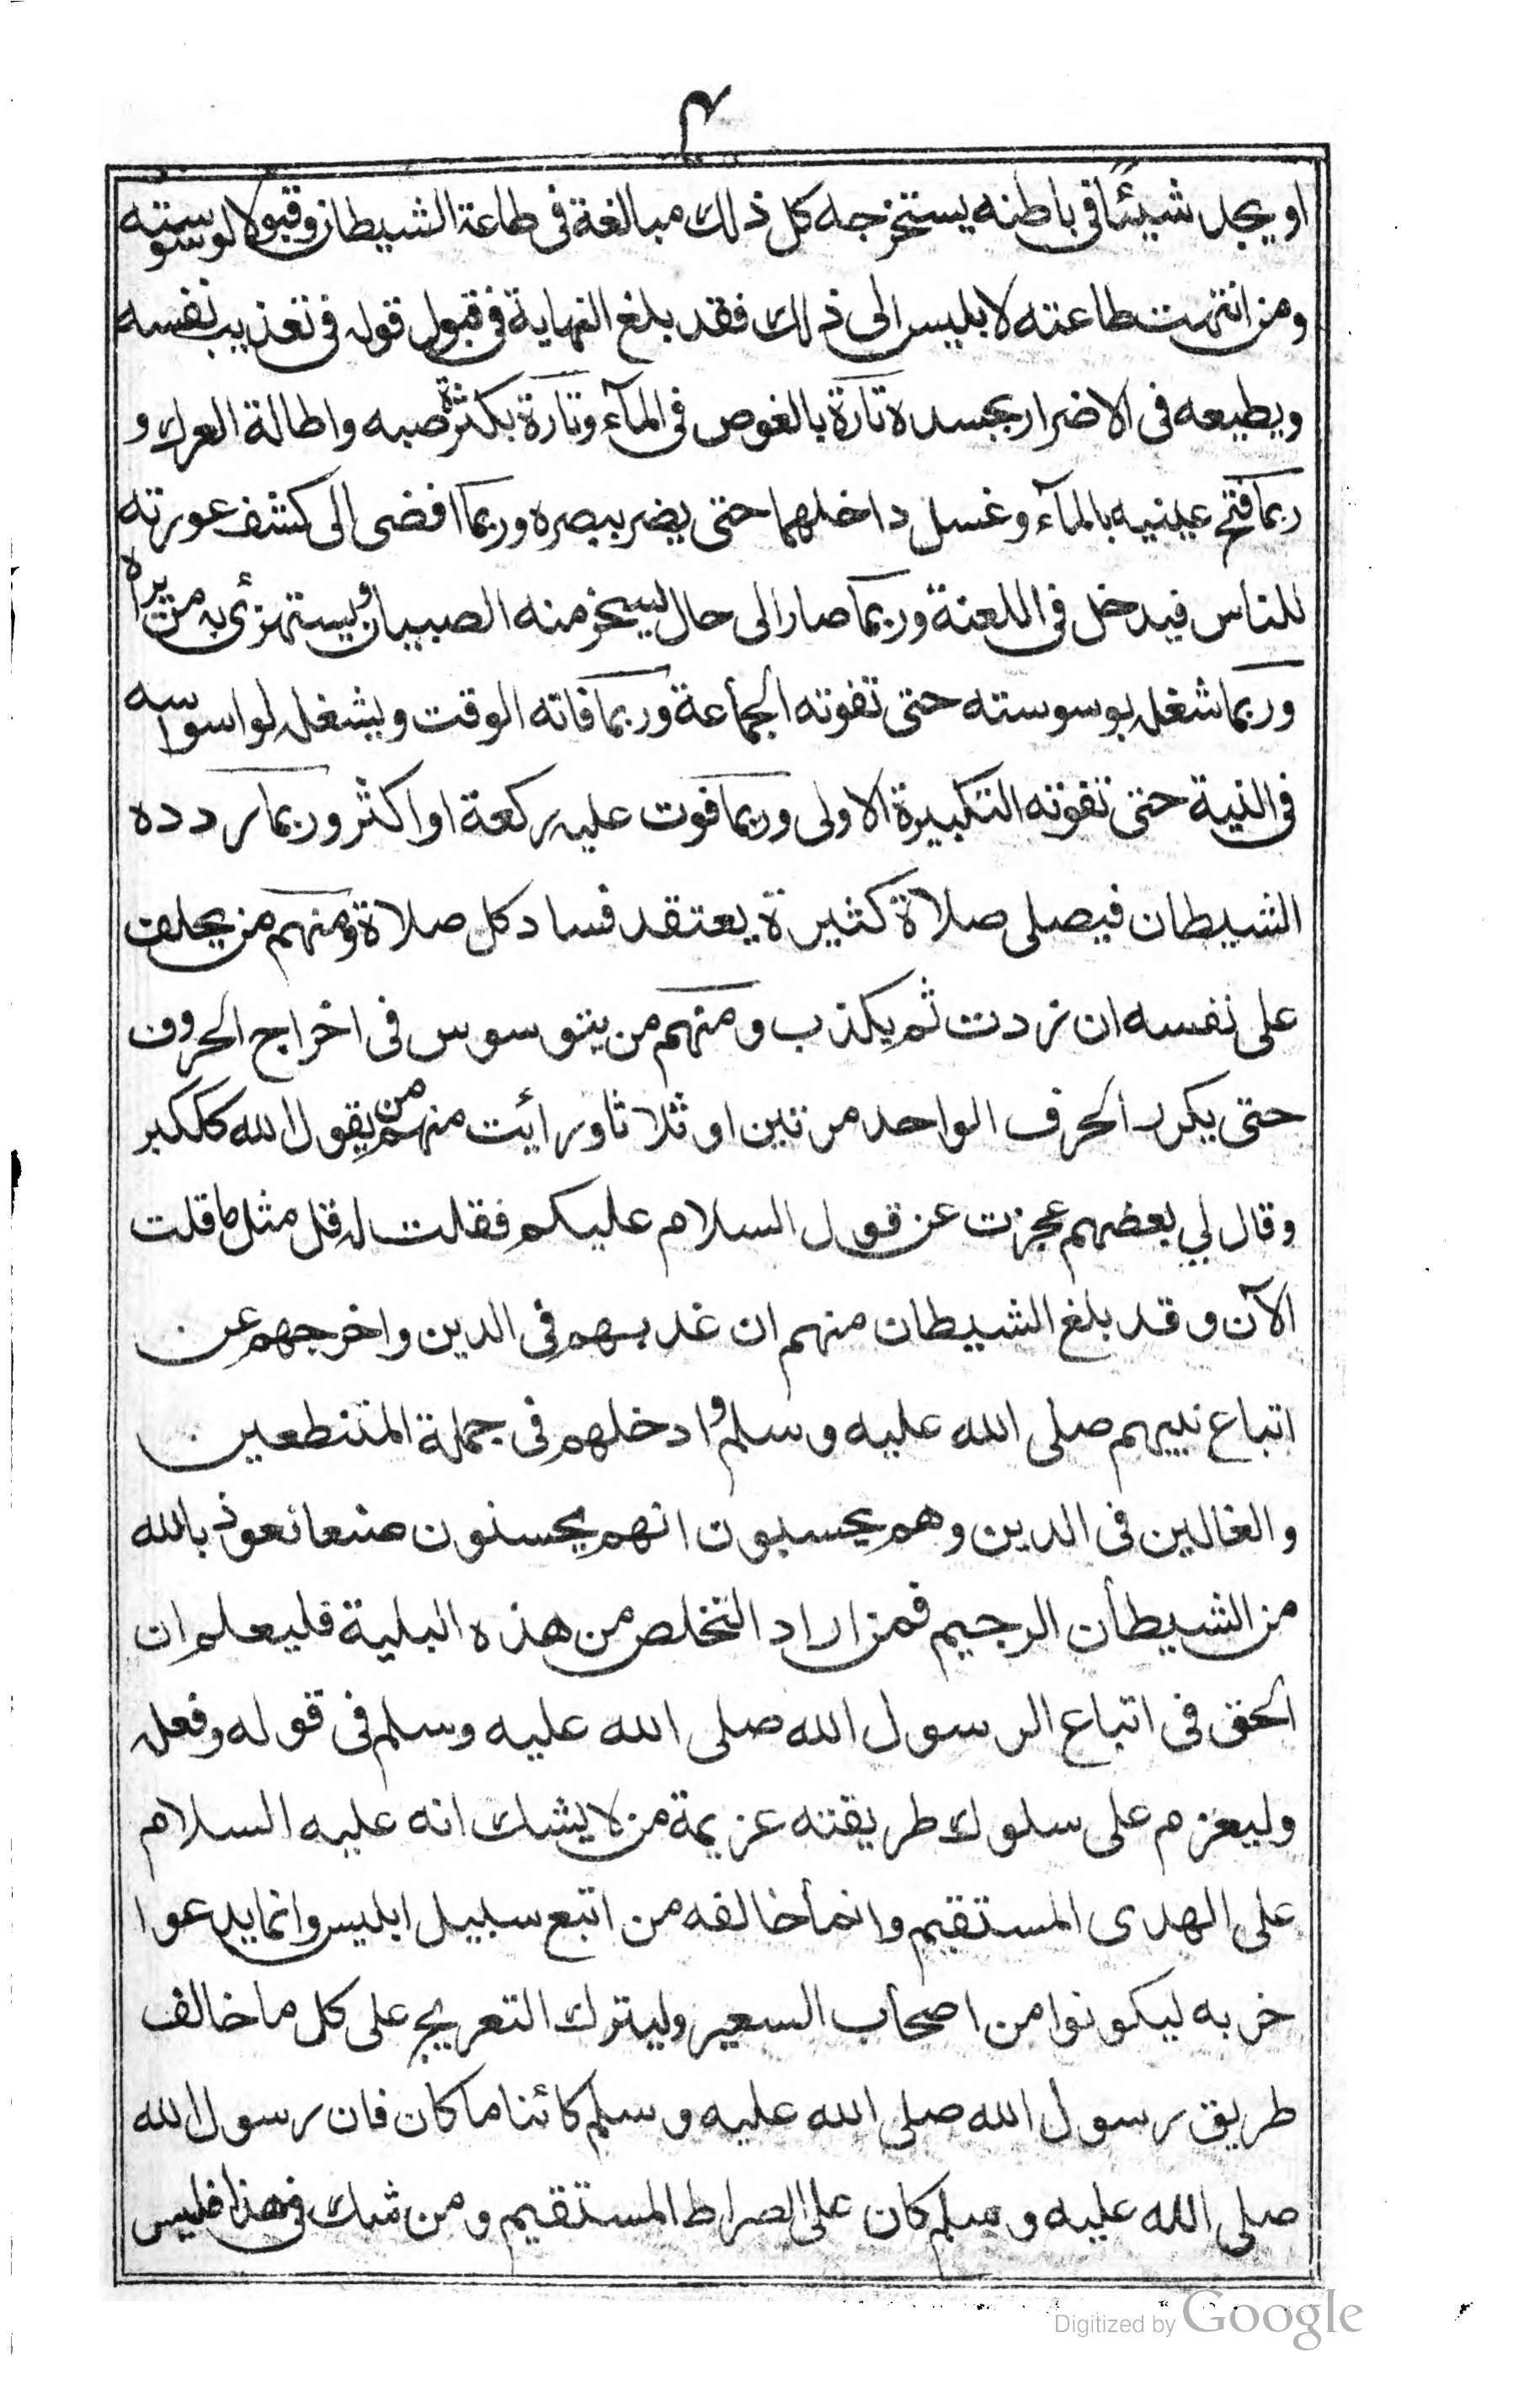 ٣
او يجد شيئًا في باطنه يستخرجه كل ذلك مبالغة في طاعة الشيطان وقبولا لوسوسته
ومن انتهت طاعته لابليس الى ذلك فقد بلغ النهاية في قبول قوله في تعذيب نفسه
ويطيعه في الاضرار بجسده تارة بالغوص في المآء وتارة بكثرة صبه واطالة العرك و
ربما فتح عينيه بالمآء وغسل داخلهما حتى يضر ببصره وربما افضى الى كشف عورته
للناس فيدخل في اللعنة وربما صار الى حال يسخر منه الصبيان ويستهزئ به من يراه
وربما شغله بوسوسته حتى تفوته الجماعة وربما فاته الوقت ويشغله لواسوسه
في النية حتى تفوته التكبيرة الاولى وربما فوت عليه ركعة او اكثر وربما ردده
الشيطان فيصلى صلاة كثيرة يعتقد فساد كل صلاة ومنهم من يحلف
على نفسه ان زدت ثم يكذب ومنهم من يتوسوس في اخراج الحروف
حتى يكرر الحرف الواحد مرتين او ثلاثا ورأيت منهم من يقول الله كلكبر
وقال لي بعضهم عجزت عن قول السلام عليكم فقلت له قل مثل ما قلت
الآن وقد بلغ الشيطان منهم ان غد بهم في الدين واخرجهم عن
اتباع نبيهم صلى الله عليه وسلم وادخلهم في جملة المتنطعين
والغالين في الدين وهم يحسبون انهم يحسنون صنعا نعوذ بالله
من الشيطان الرجيم فمن اراد التخلص من هذه البلية فليعلم ان
الحق في اتباع الرسول الله صلى الله عليه وسلم في قوله وفعله
وليعزم على سلوك طريقته عزيمة من لا يشك انه عليه السلام
على الهدى المستقيم وانما خالفه من اتبع سبيل ابليس وانما يدعوا
خربه ليكونوا من اصحاب السعير وليترك التعريج على كل ما خالف
طريق رسول الله صلى الله عليه وسلم كائنا ما كان فان رسول الله
صلى الله عليه وسلم كان على الصراط المستقيم ومن شك في هذا فليس
Digitized by Google